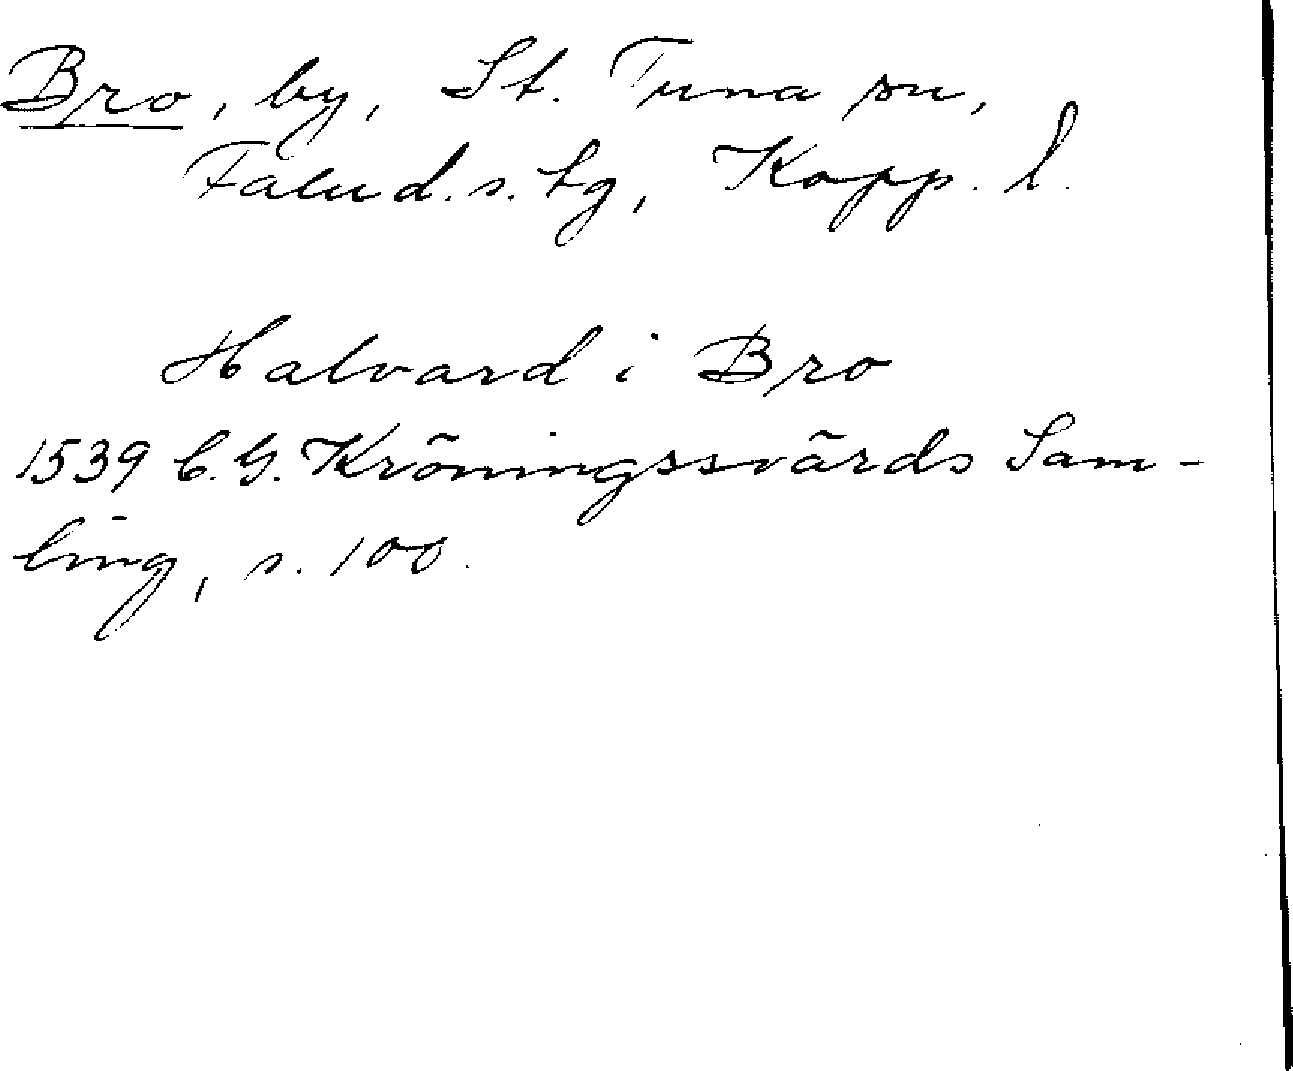 Bro, by, St. Tuna sn,
Falu d.s. tg, Kopp. l.
Halvard i Bro
1539 C.G. Kröningssvärds Sam-
ling, s. 100.